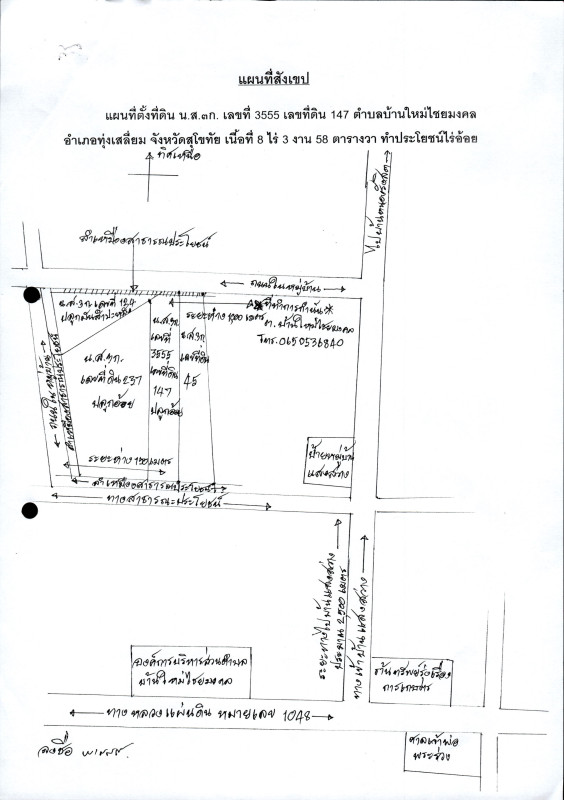 แผนที่สังเขป
แผนที่ตั้งที่ดิน น.ส.๓ก. เลขที่ 3555 เลขที่ดิน 147 ตำบลบ้านใหม่ไชยมงคล
อำเภอทุ่งเสลี่ยม จังหวัดสุโขทัย เนื้อที่ 8 ไร่ 3 งาน 58 ตารางวา ทำประโยชน์ไร่อ้อย
ทิศเหนือ
ลำเหมืองสาธารณประโยชน์
ถนนในหมู่บ้าน
น.ส.๓ก. เลขที่
น.ส.๓ก.
เลขที่ดิน 237
ปลูกอ้อย
น.ส.๓ก.
เลขที่
3555
เลขที่ดิน
147
ปลูกอ้อย
น.ส.๓ก.
เลขที่ดิน
45
ระยะห่าง เมตร
ที่ทำการกำนัน
ต.บ้านใหม่ไชยมงคล
โทร.0650536840
ถนนในหมู่บ้าน
ลำเหมืองสาธารณประโยชน์
ระยะห่าง 150 เมตร
ลำเหมืองสาธารณประโยชน์
ทางสาธารณะประโยชน์
ป้ายหมู่บ้าน
แสงสว่าง
ระยะทางไปบ้านแสงสว่าง
ประมาณ 2500 เมตร
ทางเข้าบ้านแสงสว่าง
องค์การบริหารส่วนตำบล
บ้านใหม่ไชยมงคล
ร้านทรัพย์รุ่งเรือง
การเกษตร
ทางหลวงแผ่นดิน หมายเลข 1048
ศาลเจ้าพ่อ
พระร่วง
ลงชื่อ